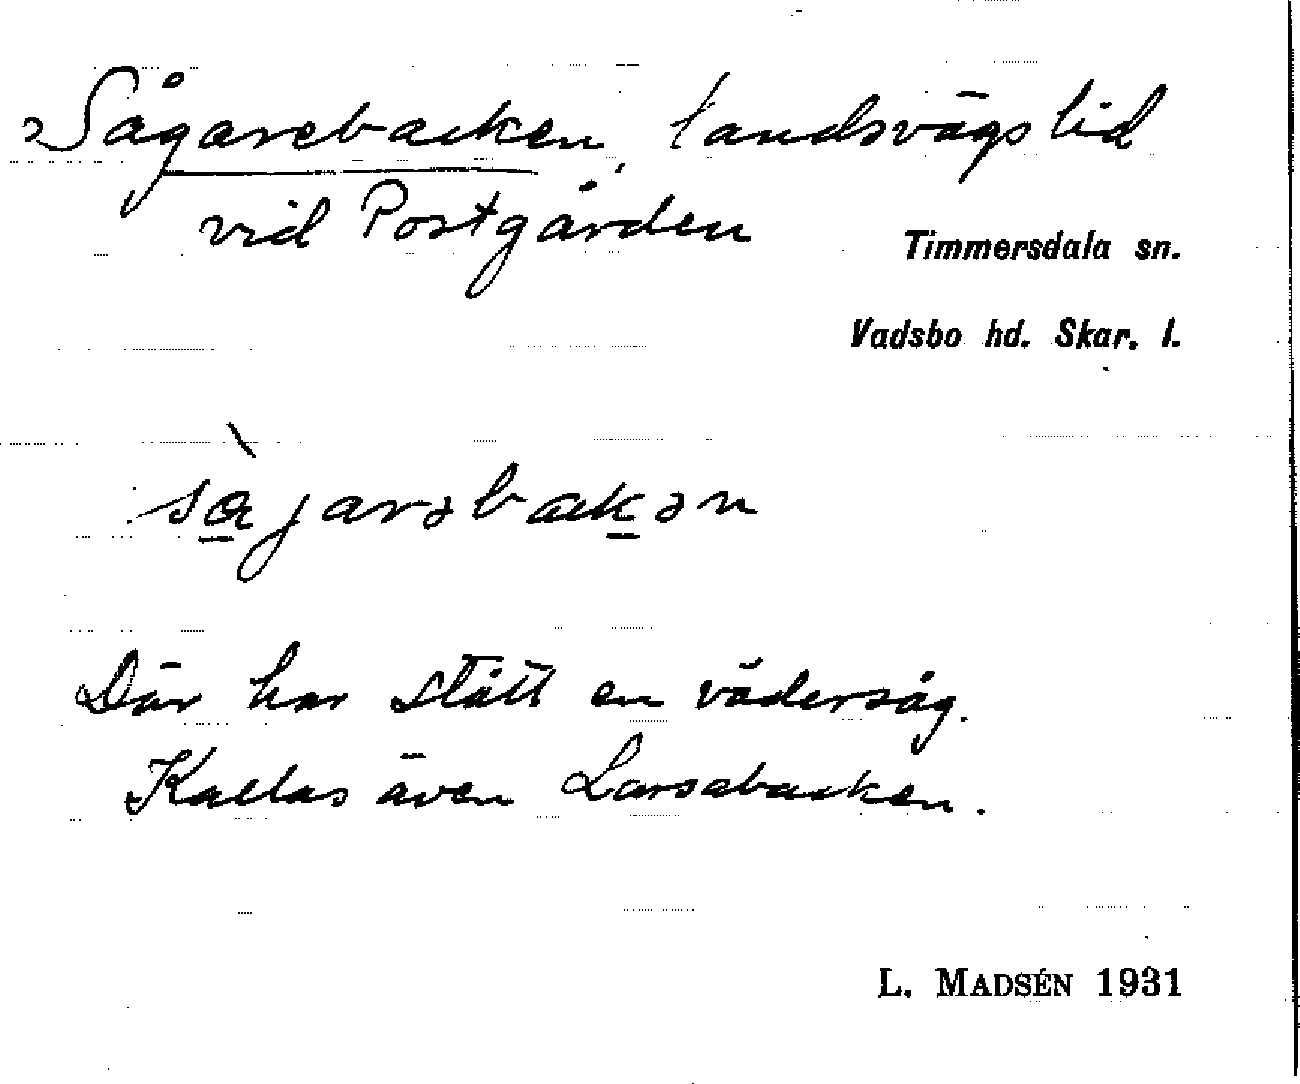 Sågarebacken, landsvägslid
vid Postgården
Timmersdala sn.
Vadsbo hd. Skar. l.
sàjarəbakən
Där har stått en vädersåg.
Kallas även Larsabacken.
L. MADSÉN 1931